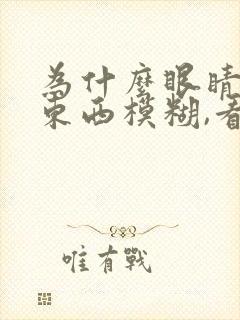 為什麼眼睛
東西模糊,看
唯有戰